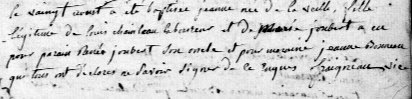 le vaingt aoust a ete baptisée jeanne née de la veille, fille
légitime de Louis chanteau laboureur et de marie joubert a eu
pour parain Pierre joubert son oncle et pour maraine jeanne
qui tous ont declarés ne Savoir signer de ce Enquis